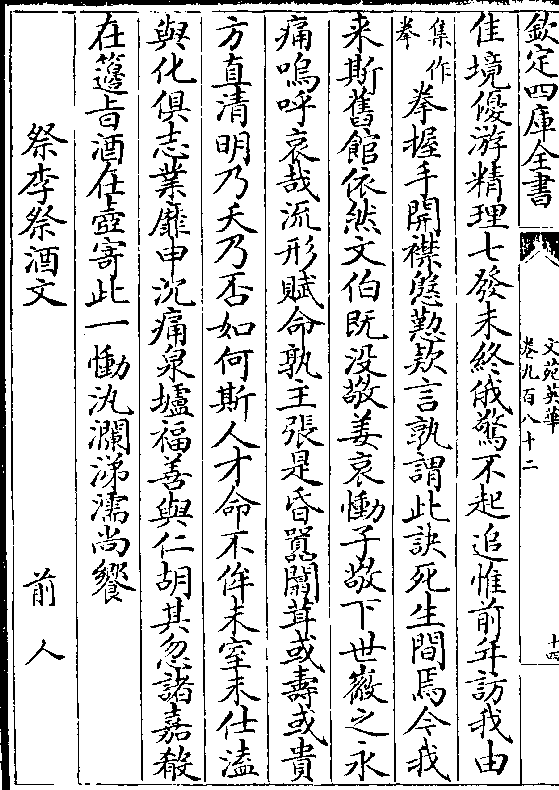 欽定四庫全書
文苑英華
卷九百八十二
十四
佳境優游精理七發未終俄驚不起追惟前年訪我由
集作
拳
拳握手開襟慇懃欵言孰謂此訣死生間焉今我
来斯舊館依然文伯既没敬姜哀慟子敬下世徽之永
痛嗚呼哀哉流形賦命孰主張是昏嚚闒茸或壽或貴
方直清明乃夭乃否如何斯人才命不侔未室未仕溘
與化俱志業靡申沉痛泉壚福善與仁胡其忽諸嘉殽
在籩旨酒在壺寄此一慟汍瀾涕濡尚饗
祭李祭酒文
前人